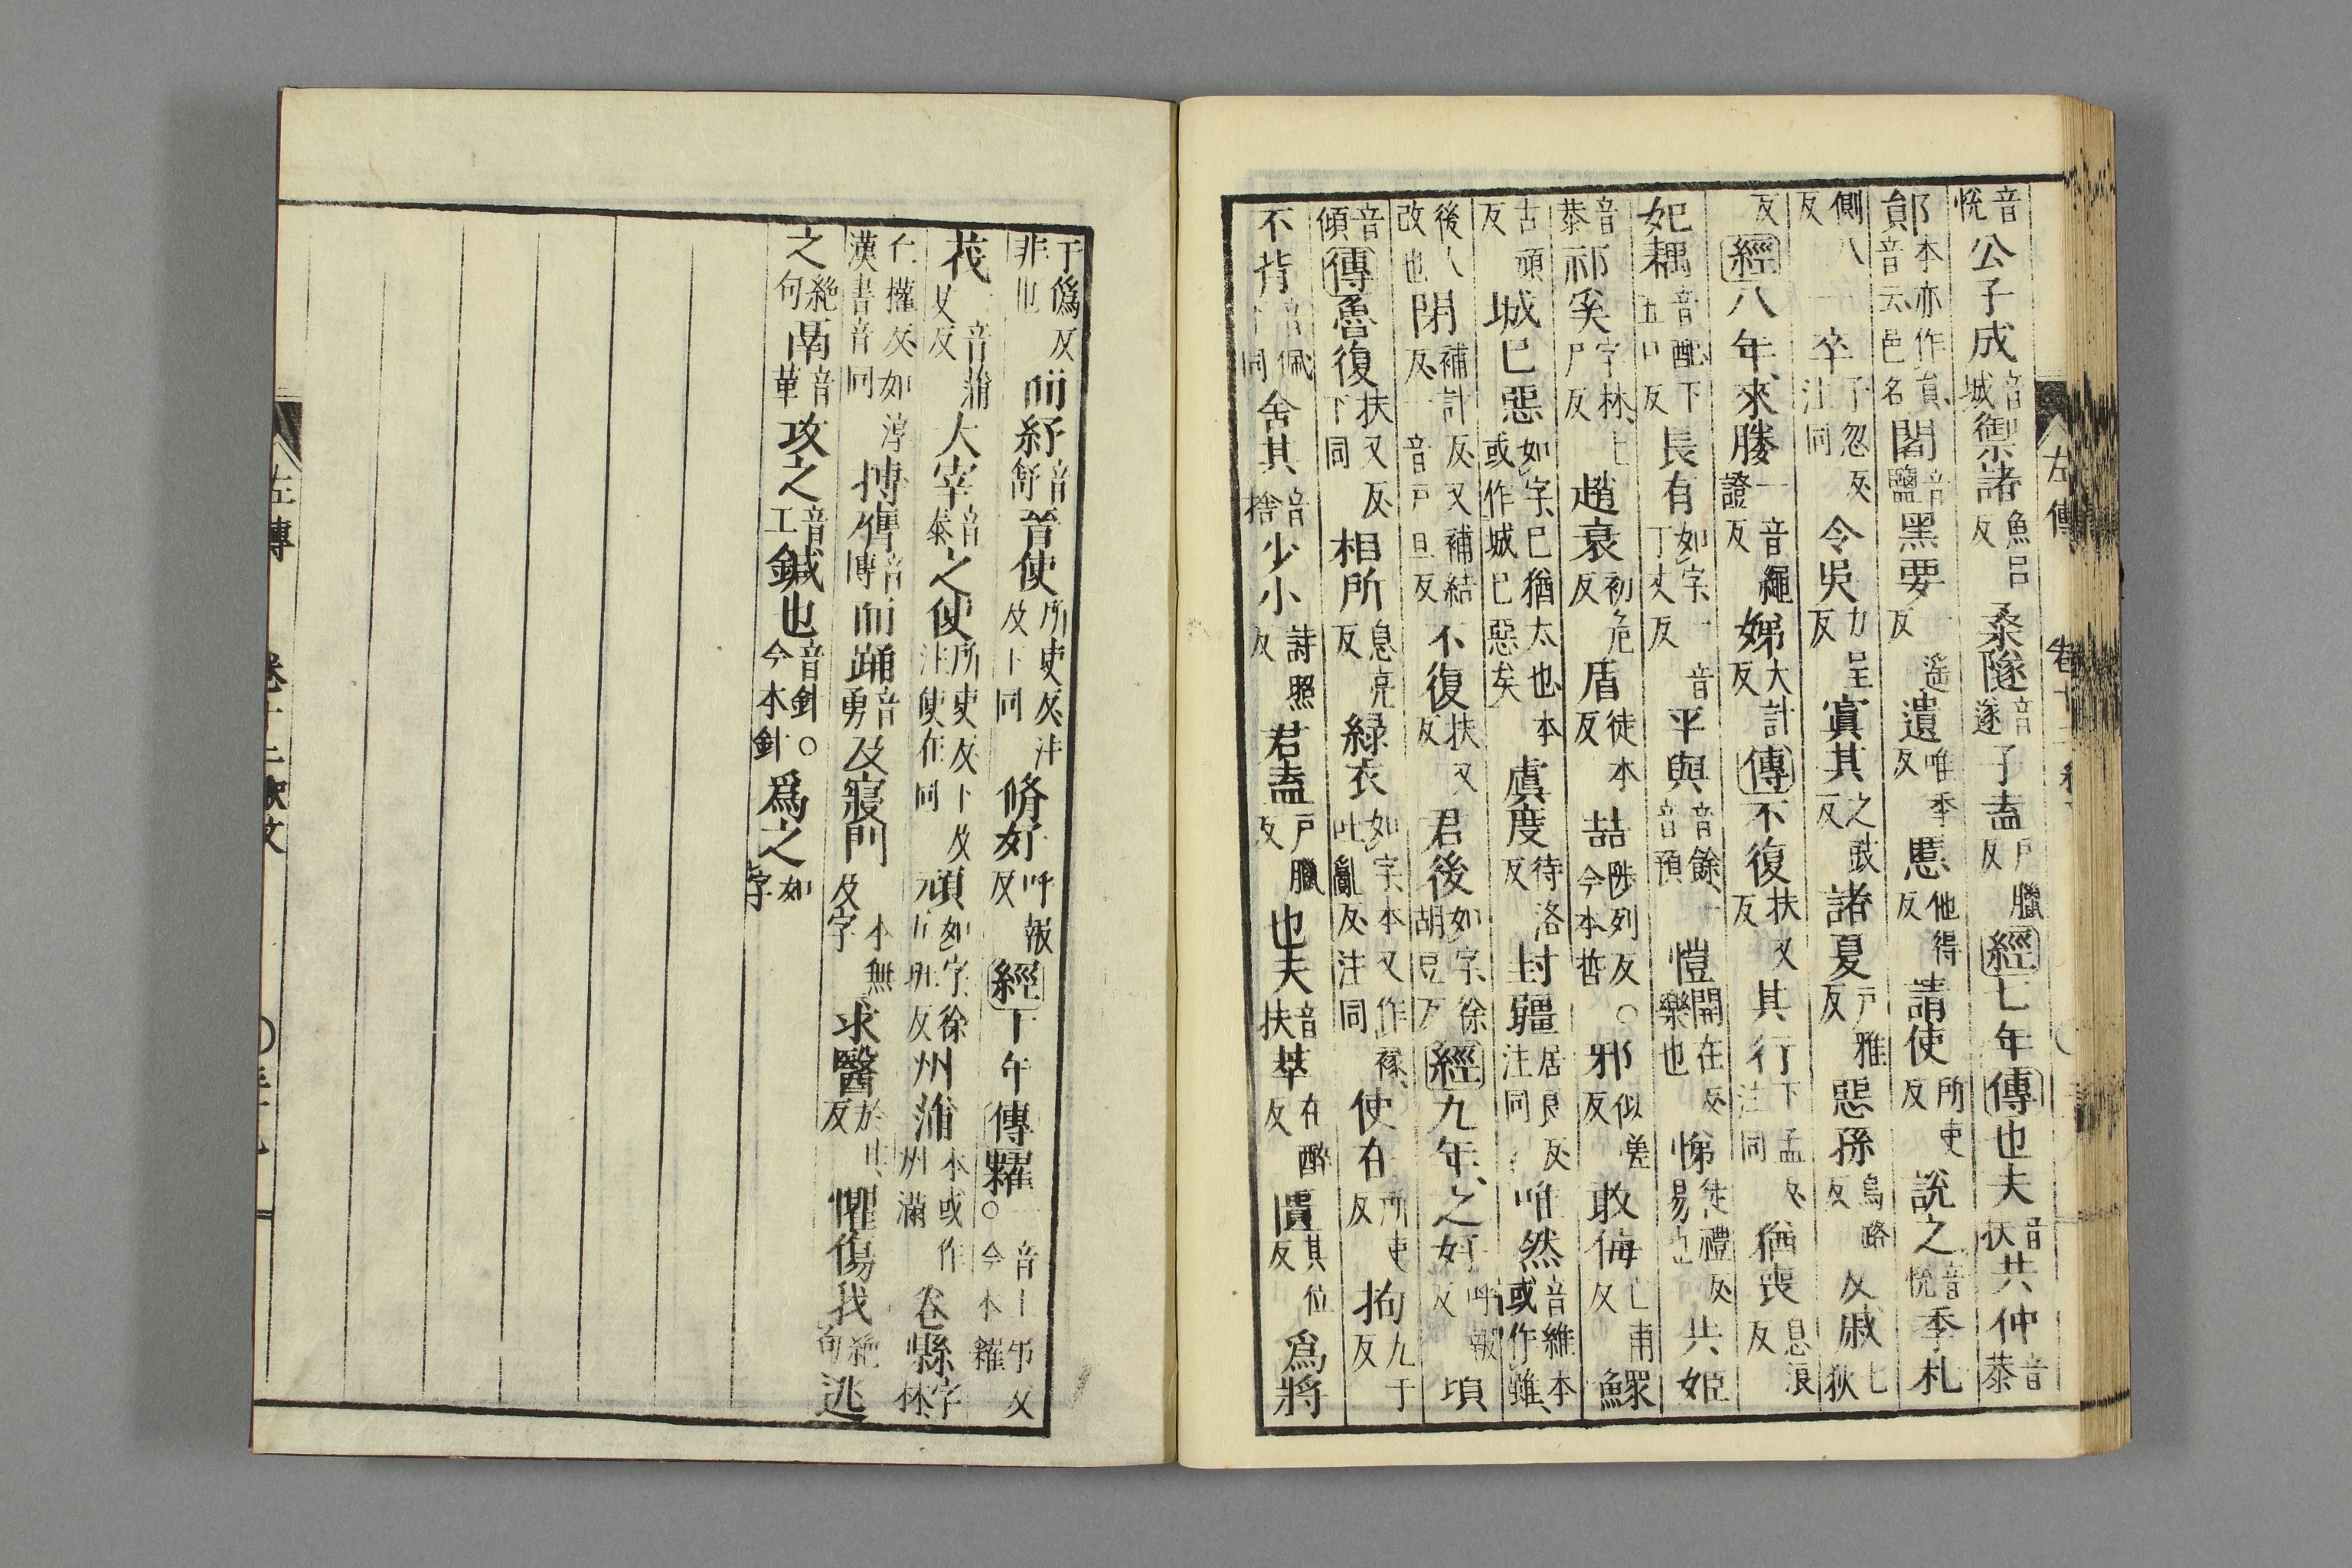 左傳
音悅公子成音城禦諸魚呂反桑隧音遂子盍戶臘反經七年傳也夫音扶共仲音恭
鄖本亦作員音云邑名闔音鹽黑要一遙反遺唯季反慝他得反請使所吏反說之音悅季札
側八反卒子忽反注同令吳力呈反寘其之豉反諸夏戶雅反惡孫烏路反戚七狄
反經八年來媵證反一音繩娣大計反傳不復扶又反其行下孟反注同猶喪息浪反
妃耦音配下五口反長有如字一丁丈反平與音餘一音預愷開在反樂也悌徒禮反易也共姬
音恭祁奚字林上尸反趙衰初危反盾徒本反喆陟列反○今本哲邪似嗟反敢侮亡甫反鰥
古頑反城已惡如字已猶太也本或作城已惡矣虞度待洛反封疆居良反注同唯然音維本或作雖
後人改也閉補計反又補結反一音戶旦反不復扶又反君後如字徐胡豆反經九年之好呼報反頃
音傾傳魯復扶又反下同相所息亮反綠衣如字本又作褖吐亂反注同使在所吏反拘九于反
不背音佩下同舍其音捨少小詩照反君盍戶臘反也夫音扶萃在醉反匱其位反爲將
于僞反非也而紓音舒晉使所吏反注及下同脩好呼報反經十年傳糴一音弔反○今本糴
茷音蒲艾反大宰音泰之使所吏反下及注使在同頑如字徐五班反州蒲本或作州滿卷縣字林
丘權反如淳漢書音同搏膺音博而踊音勇及寢門本無及字求醫於其反懼傷我絶句逃
之絶句鬲音革攻之音工鍼也音針○今本針爲之如字
左傳